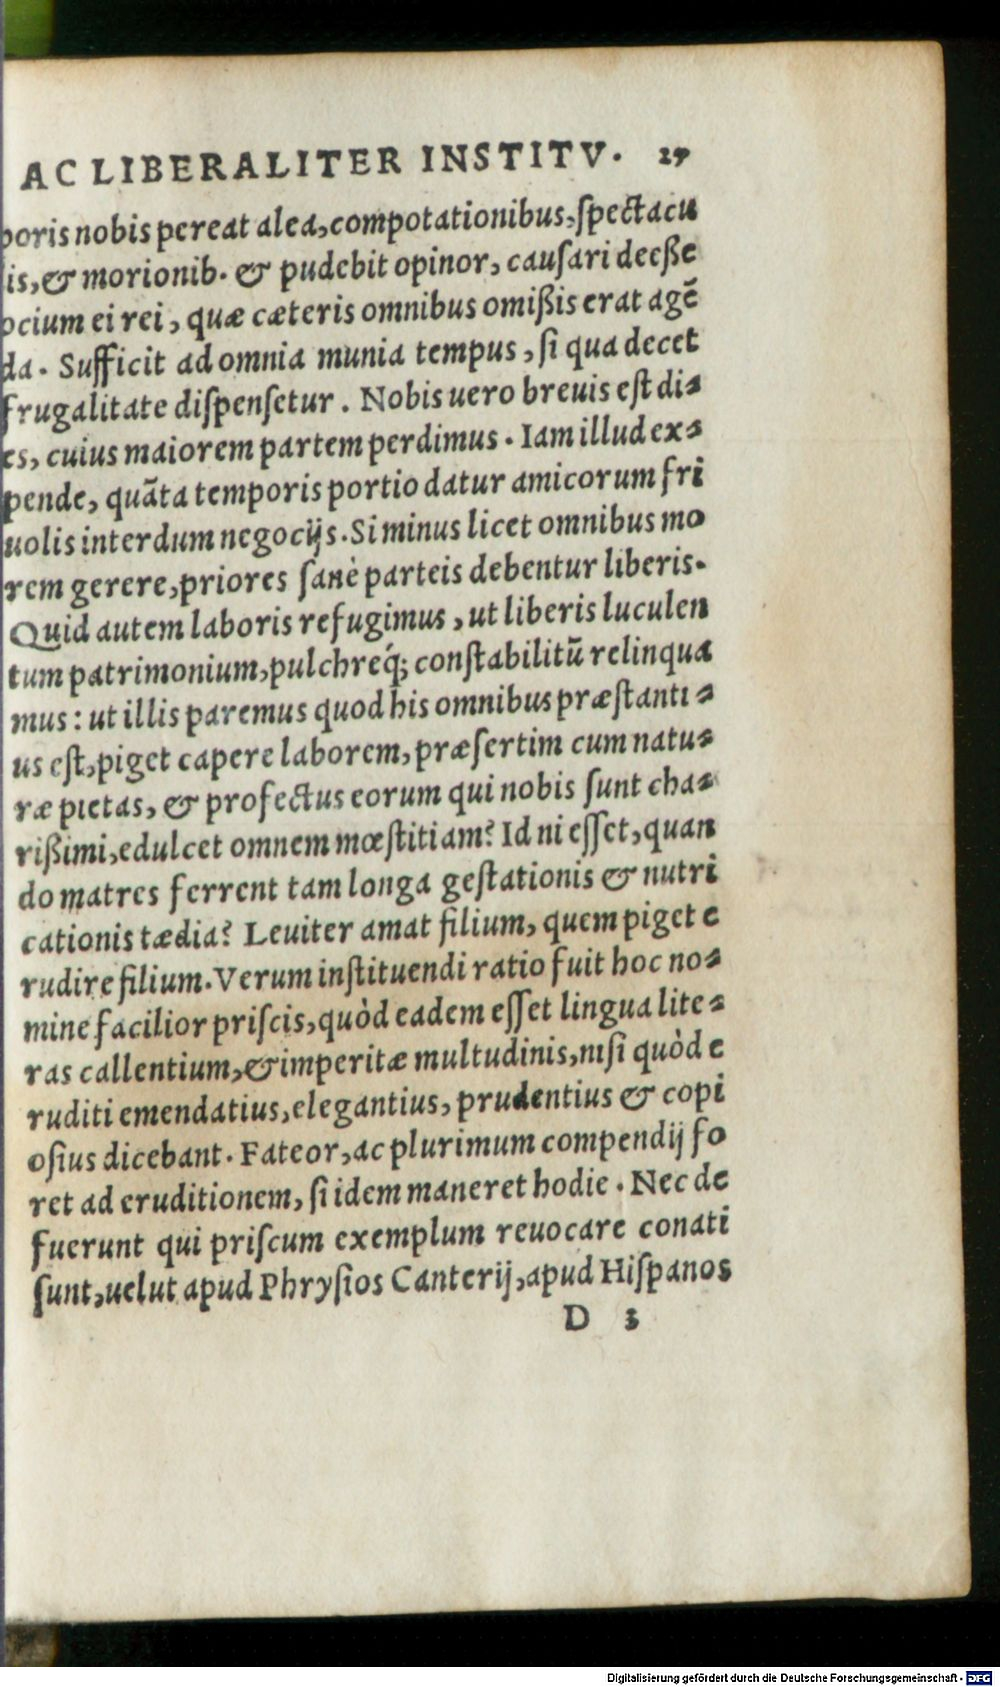 AC LIBERALITER INSTITV. 27
poris nobis pereat alea, compotationibus, ſpectacu
lis, & morionib. & pudebit opinor, cauſari deeße
ocium ei rei, quæ cæteris omnibus omißis erat agẽ
da. Sufficit ad omnia munia tempus, ſi qua decet
frugalitate diſpenſetur. Nobis uero breuis eſt di⸗
es, cuius maiorem partem perdimus. Iam illud ex⸗
pende, quãta temporis portio datur amicorum fri
uolis interdum negocijs. Si minus licet omnibus mo
rem gerere, priores ſanè parteis debentur liberis.
Quid autem laboris refugimus, ut liberis luculen
tum patrimonium, pulchreq́; conſtabilitũ relinqua
mus: ut illis paremus quod his omnibus præſtanti⸗
us eſt, piget capere laborem, præſertim cum natu⸗
ræ pietas, & profectus eorum qui nobis ſunt cha⸗
rißimi, edulcet omnem mœſtitiam? Id ni eſſet, quan
do matres ferrent tam longa geſtationis & nutri
cationis tædia? Leuiter amat filium, quem piget e
rudire filium. Verum inſtituendi ratio fuit hoc no⸗
mine facilior priſcis, quòd eadem eſſet lingua lite⸗
ras callentium, & imperitæ multudinis, niſi quòd e
ruditi emendatius, elegantius, prudentius & copi
oſius dicebant. Fateor, ac plurimum compendij fo
ret ad eruditionem, ſi idem maneret hodie. Nec de
fuerunt qui priſcum exemplum reuocare conati
ſunt, uelut apud Phryſios Canterij, apud Hiſpanos
D 3
Digitalisierung gefördert durch die Deutsche Forschungsgemeinschaft - DFG